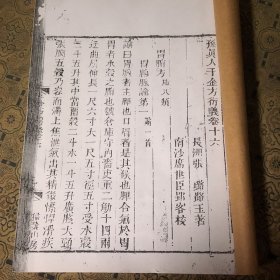 孫真人千金方衍義卷十六
長洲張璐路玉著
南沙席世臣郢客校
胃腑方凡八類
胃腑脈論第一 論一首
論曰胃腑者主脾也口唇者是其候也脾合氣於胃
胃者水穀之腑也號倉庫守內嗇吏重二斤十四兩
迂曲屈伸長二尺六寸大一尺五寸徑五寸受水穀
三斗五升其中當留穀二斗水一斗五升廣胲大頸
張胸五穀乃容而滿上焦泄氣出其精微慓悍滑疾